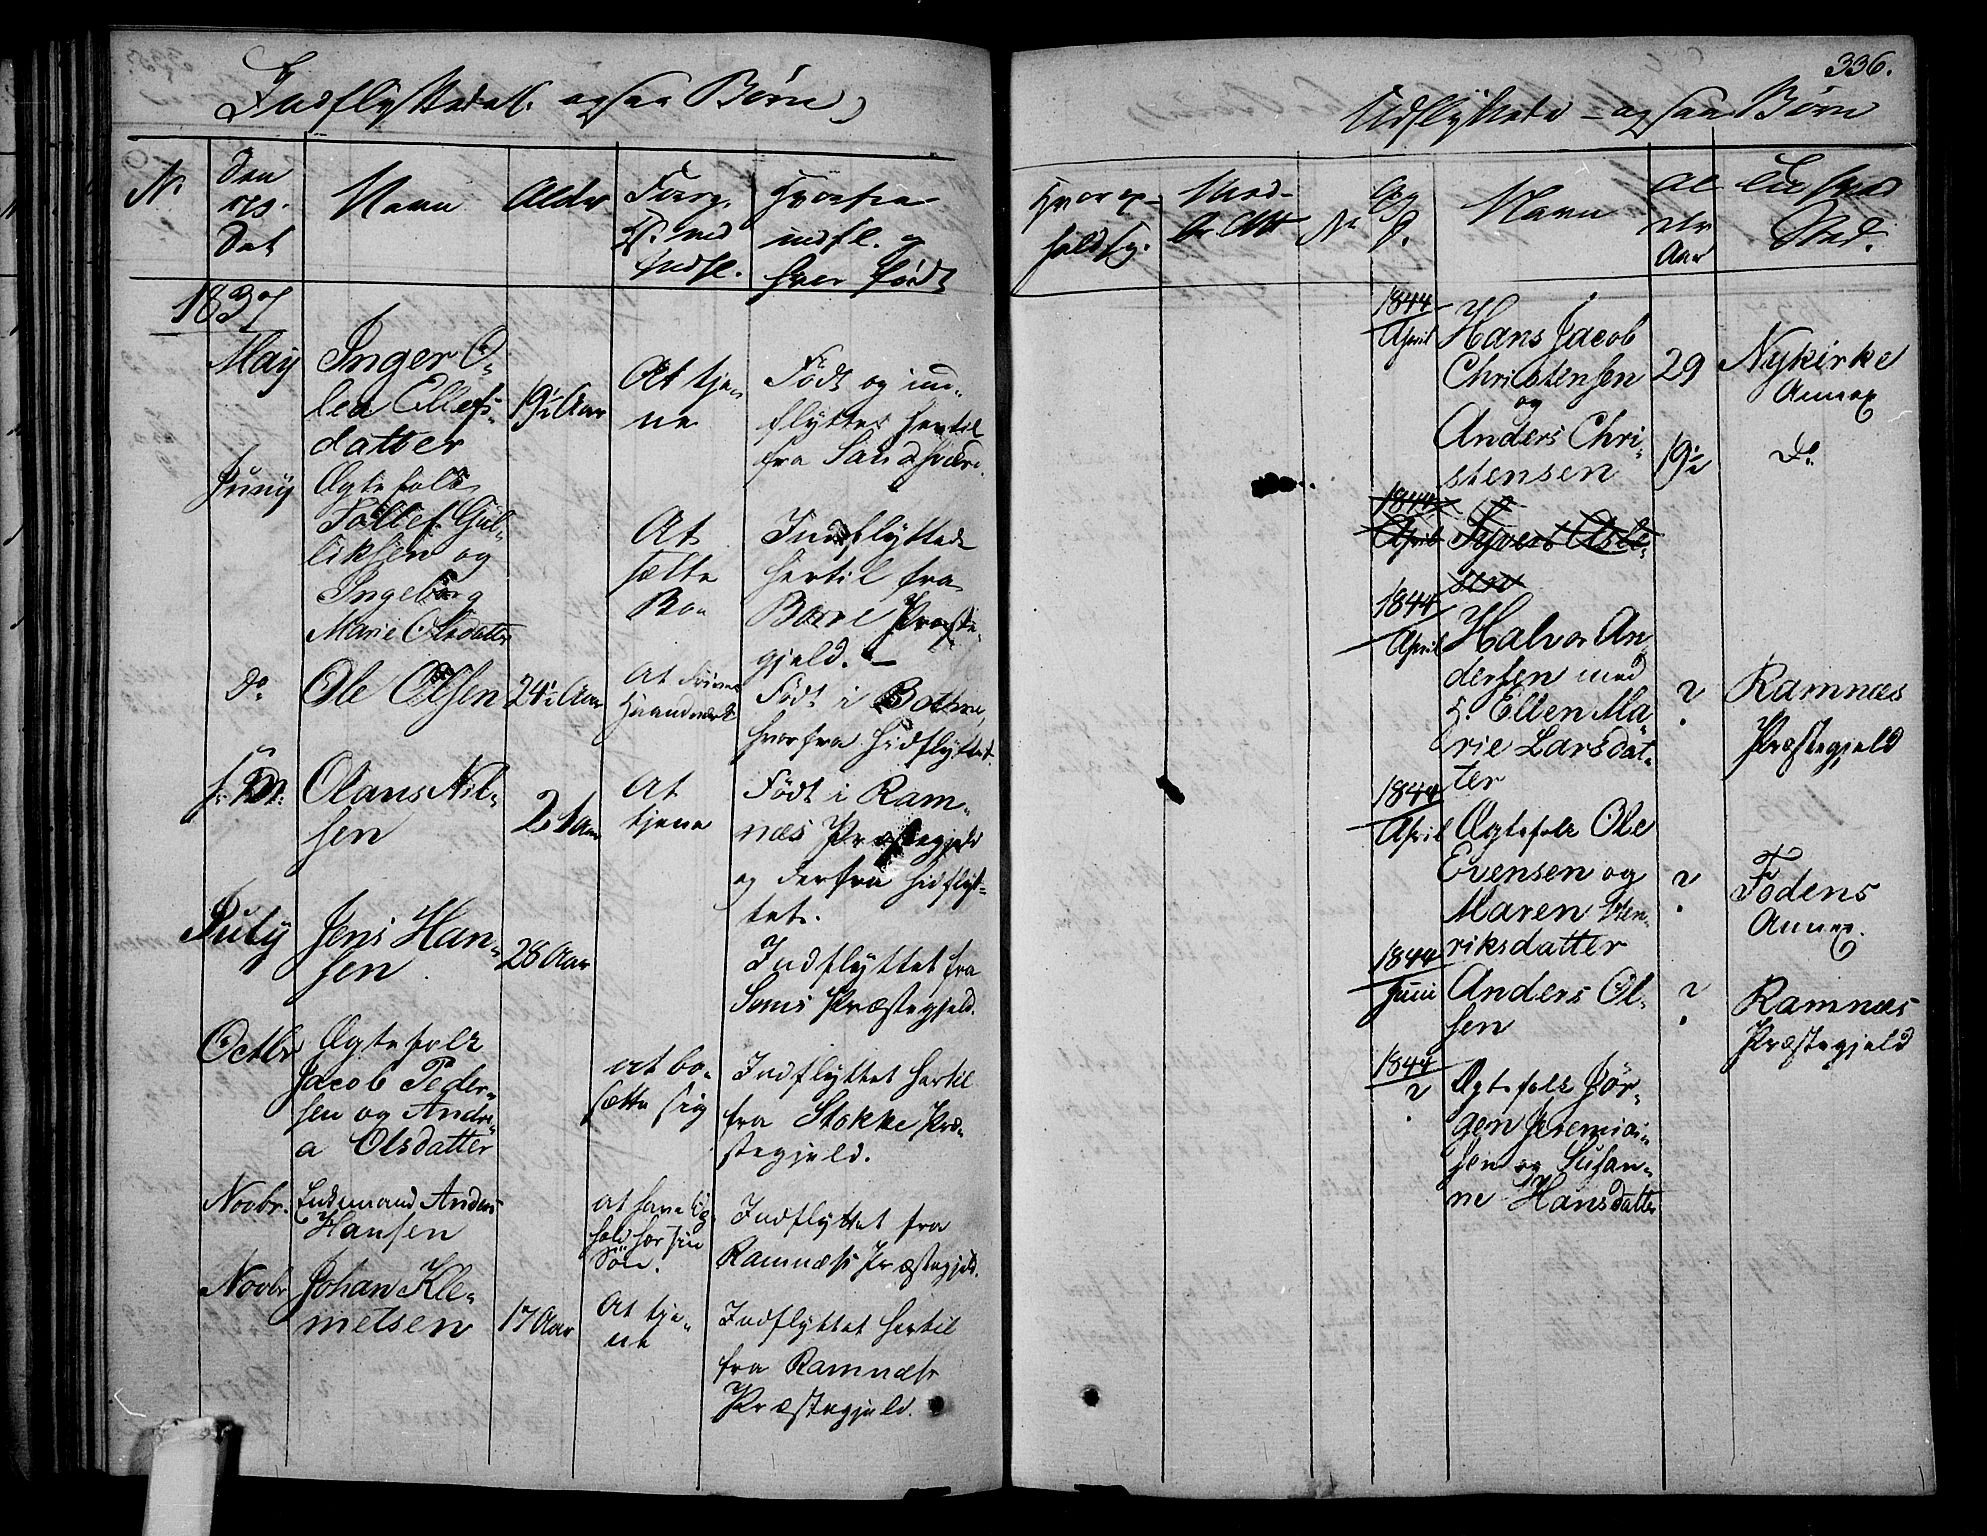 Indflyttede. ogsaa Børn
No
Den
og
Dat
Navn
Alder
I hvad
ved
Indfl.
Hvorfra
indfl. og
hvor født
1837
May
Inger O-
lea Ellefs-
datter
19½ Aar
At tje-
ne
Født og ind-
flyttet hertil
fra Sandsværd.
Juny
Ægtefolk
Tollef Gul-
liksen og
Ingeborg
Marie Olsdatter
At
sætte
Bo
Indflyttede
hertil fra
Borre Præste-
gjeld. —
Do
Ole Olsen
24½ Aar
At drive
Haandværk
Født i Bothne,
hvorfra hidflyttet.
Olaus Niel-
sen
21 Aar
At
tjene
Født i Ram-
næs Præstegjeld
og derfra hidflyt-
tet.
July
Jens Han-
sen
28 Aar
Indflyttet fra
Sems Præstegjeld.
Octbr
Ægtefolk
Jacob Peder-
sen og Andre-
a Olsdatter
at bo-
sætte sig
Indflyttet hertil
fra Stokke Præ-
stegjeld.
Novbr.
Enkemand Anders
Hansen
at have Op-
hold hos sin
Søn.
Indflyttet fra
Ramnæs Præstegjeld.
Novbr
Johan Kle-
metsen
17 Aar
At tje-
ne
Indflyttet hertil
fra Ramnæs
Præstegjeld.
336.
Udflyttede - ogsaa Børn
Hvor op-
holdt sig.
No
Navn
Al
der
Aar
Sted.
1844
April
Hans Jacob
Christensen
og
29
Nykirke
Annex
Anders Chri-
stensen
19½
Do
1844
April
Syvert Asle-
sen
1844
April
Halvor An
dersen med
H. Ellen Ma
rie Larsdat-
ter
?
Ramnæs
Præstegjeld
1844
April
Ægtefolk Ole
Evensen og
Maren Hen-
riksdatter
?
Fodens
Annex.
1844
Juni
Anders Ol-
sen
?
Ramnæs
Præstegjeld
1844
?
Ægtefolk Jør-
gen Jeremias-
sen og Susan-
ne Hansdatter